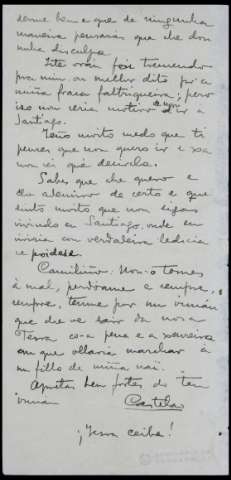 dame ben e que de ningunha
maneira pensarás que che dou
unha disculpa.
Iste vrán foi tremendo
pra min ou mellor dito pr-a
miña fraca faltriqueira; pero
iso non sería motivo de non ir a
Santiago.
Teño moito medo que ti
penses que non quero ir e xa
non sei qué decirche.
Sabes que che quero e
che admiro de certo e que
sinto moito que non sigas
vivindo en Santiago, onde eu
viviría con verdadeira ledicia
se poidese.
Camiliño: Non-o tomes
a mal, perdóame e sempre,
sempre, tenme por un irmán
que che ve sair da nosa
Terra co-a pena e a saudade
con que ollaría marchar a
un fillo de miña nai.
Apertas ben fortes do teu
irmán
Castelao
¡Terra ceibe!